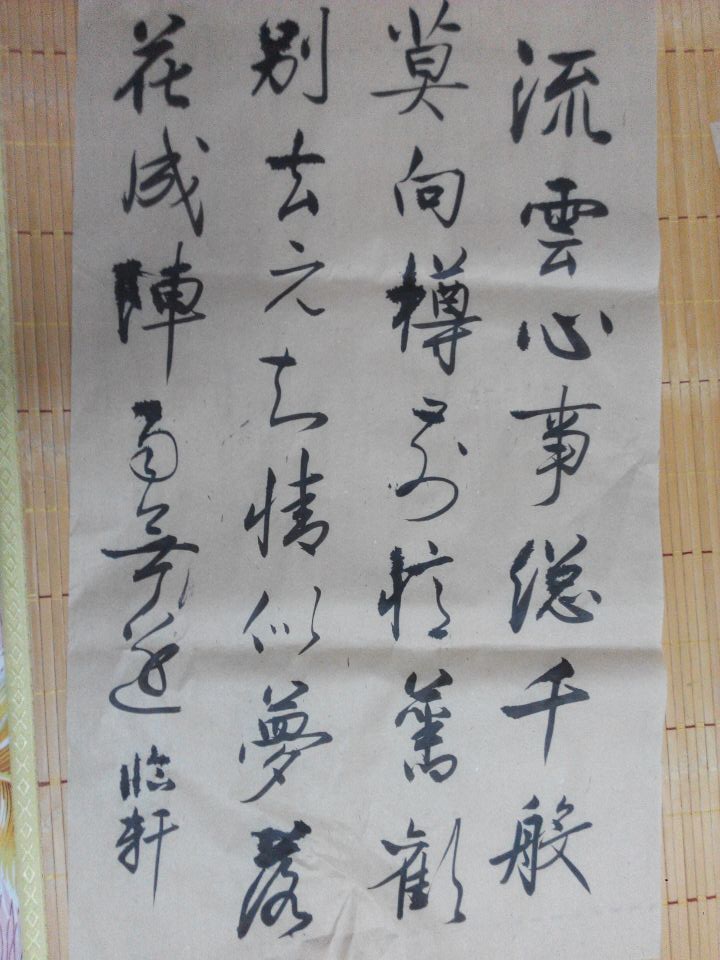 流雲心事總千般
莫向樽前憶舊歡
别去元知情似夢落
花成陣雨無邊
临轩